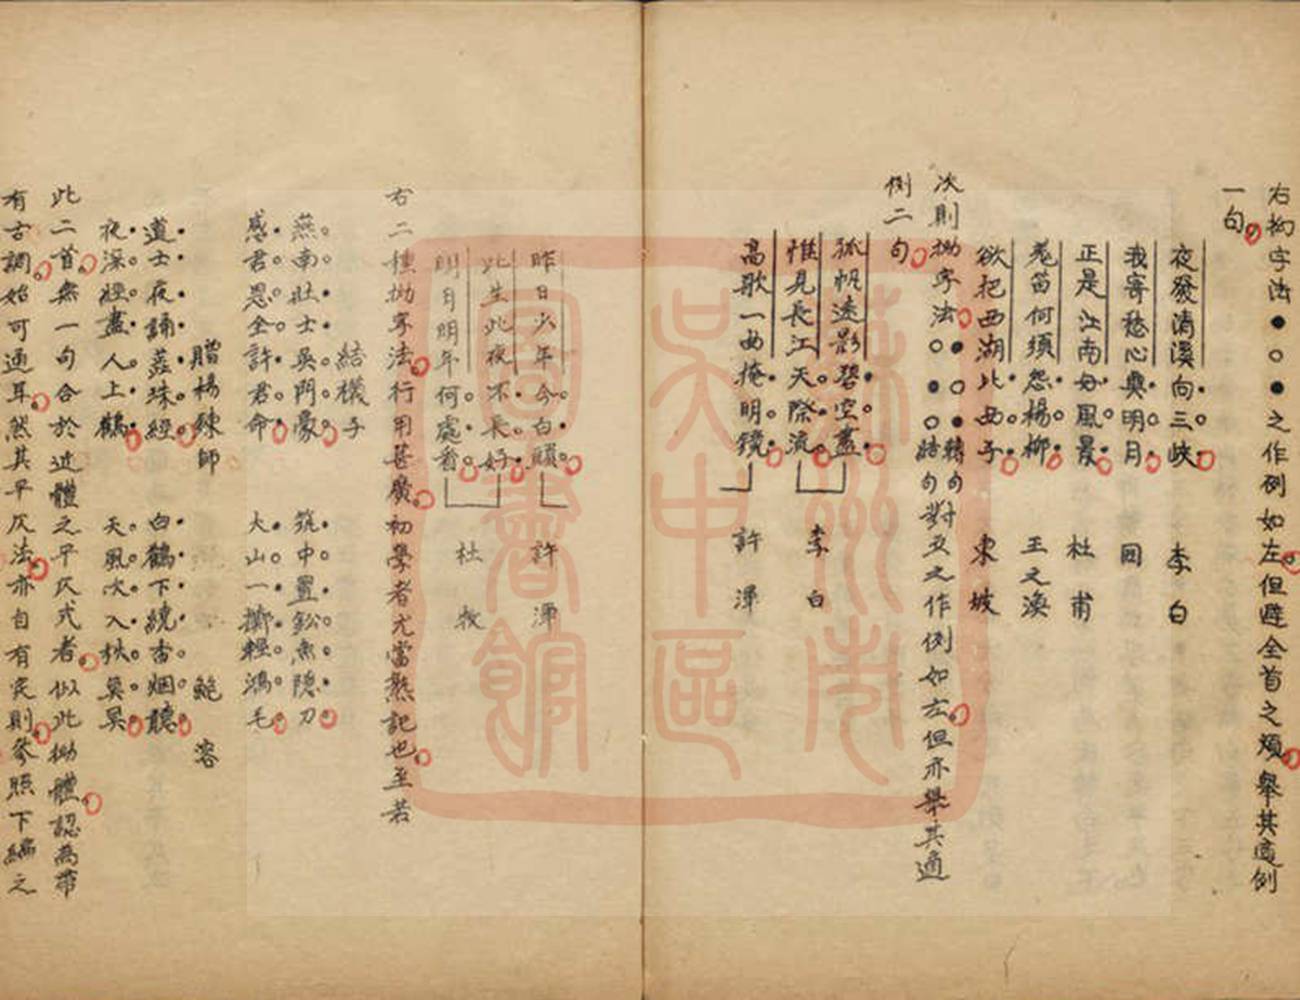 右拗字法●○●之作例如左但避全首之煩舉其適例
一句
夜發清溪向三峽 李白
我寄愁心與明月 同
正是江南好風景 杜甫
羌笛何須怨楊柳 王之渙
欲把西湖比西子 東坡
次則拗字法●○●●轉句○●○○結句對立之作例如左但亦舉其適
例二句
孤帆遠影碧空盡
惟見長江天際流 李白
高歌一曲掩明鏡 許渾
昨日少年今白頭 許渾
此生此夜不長好
明月明年何處看 杜牧
右二種拗字法行用甚廣初學者尤當熟記也至若
結襪子
燕南壯士吳門豪 筑中置鉛魚隱刀
感君恩全許君命 太山一擲輕鴻毛
贈楊鍊師 鮑容
道士夜誦蕊珠經 白鶴下繞香烟聽
夜深經盡人上鶴 天風吹入秋冥冥
此二首無一句合於近體之平仄式者似此拗體認為帶
有古調始可通耳然其平仄法亦自有定則參照下編之
蘇州市
吳中區
圖書館